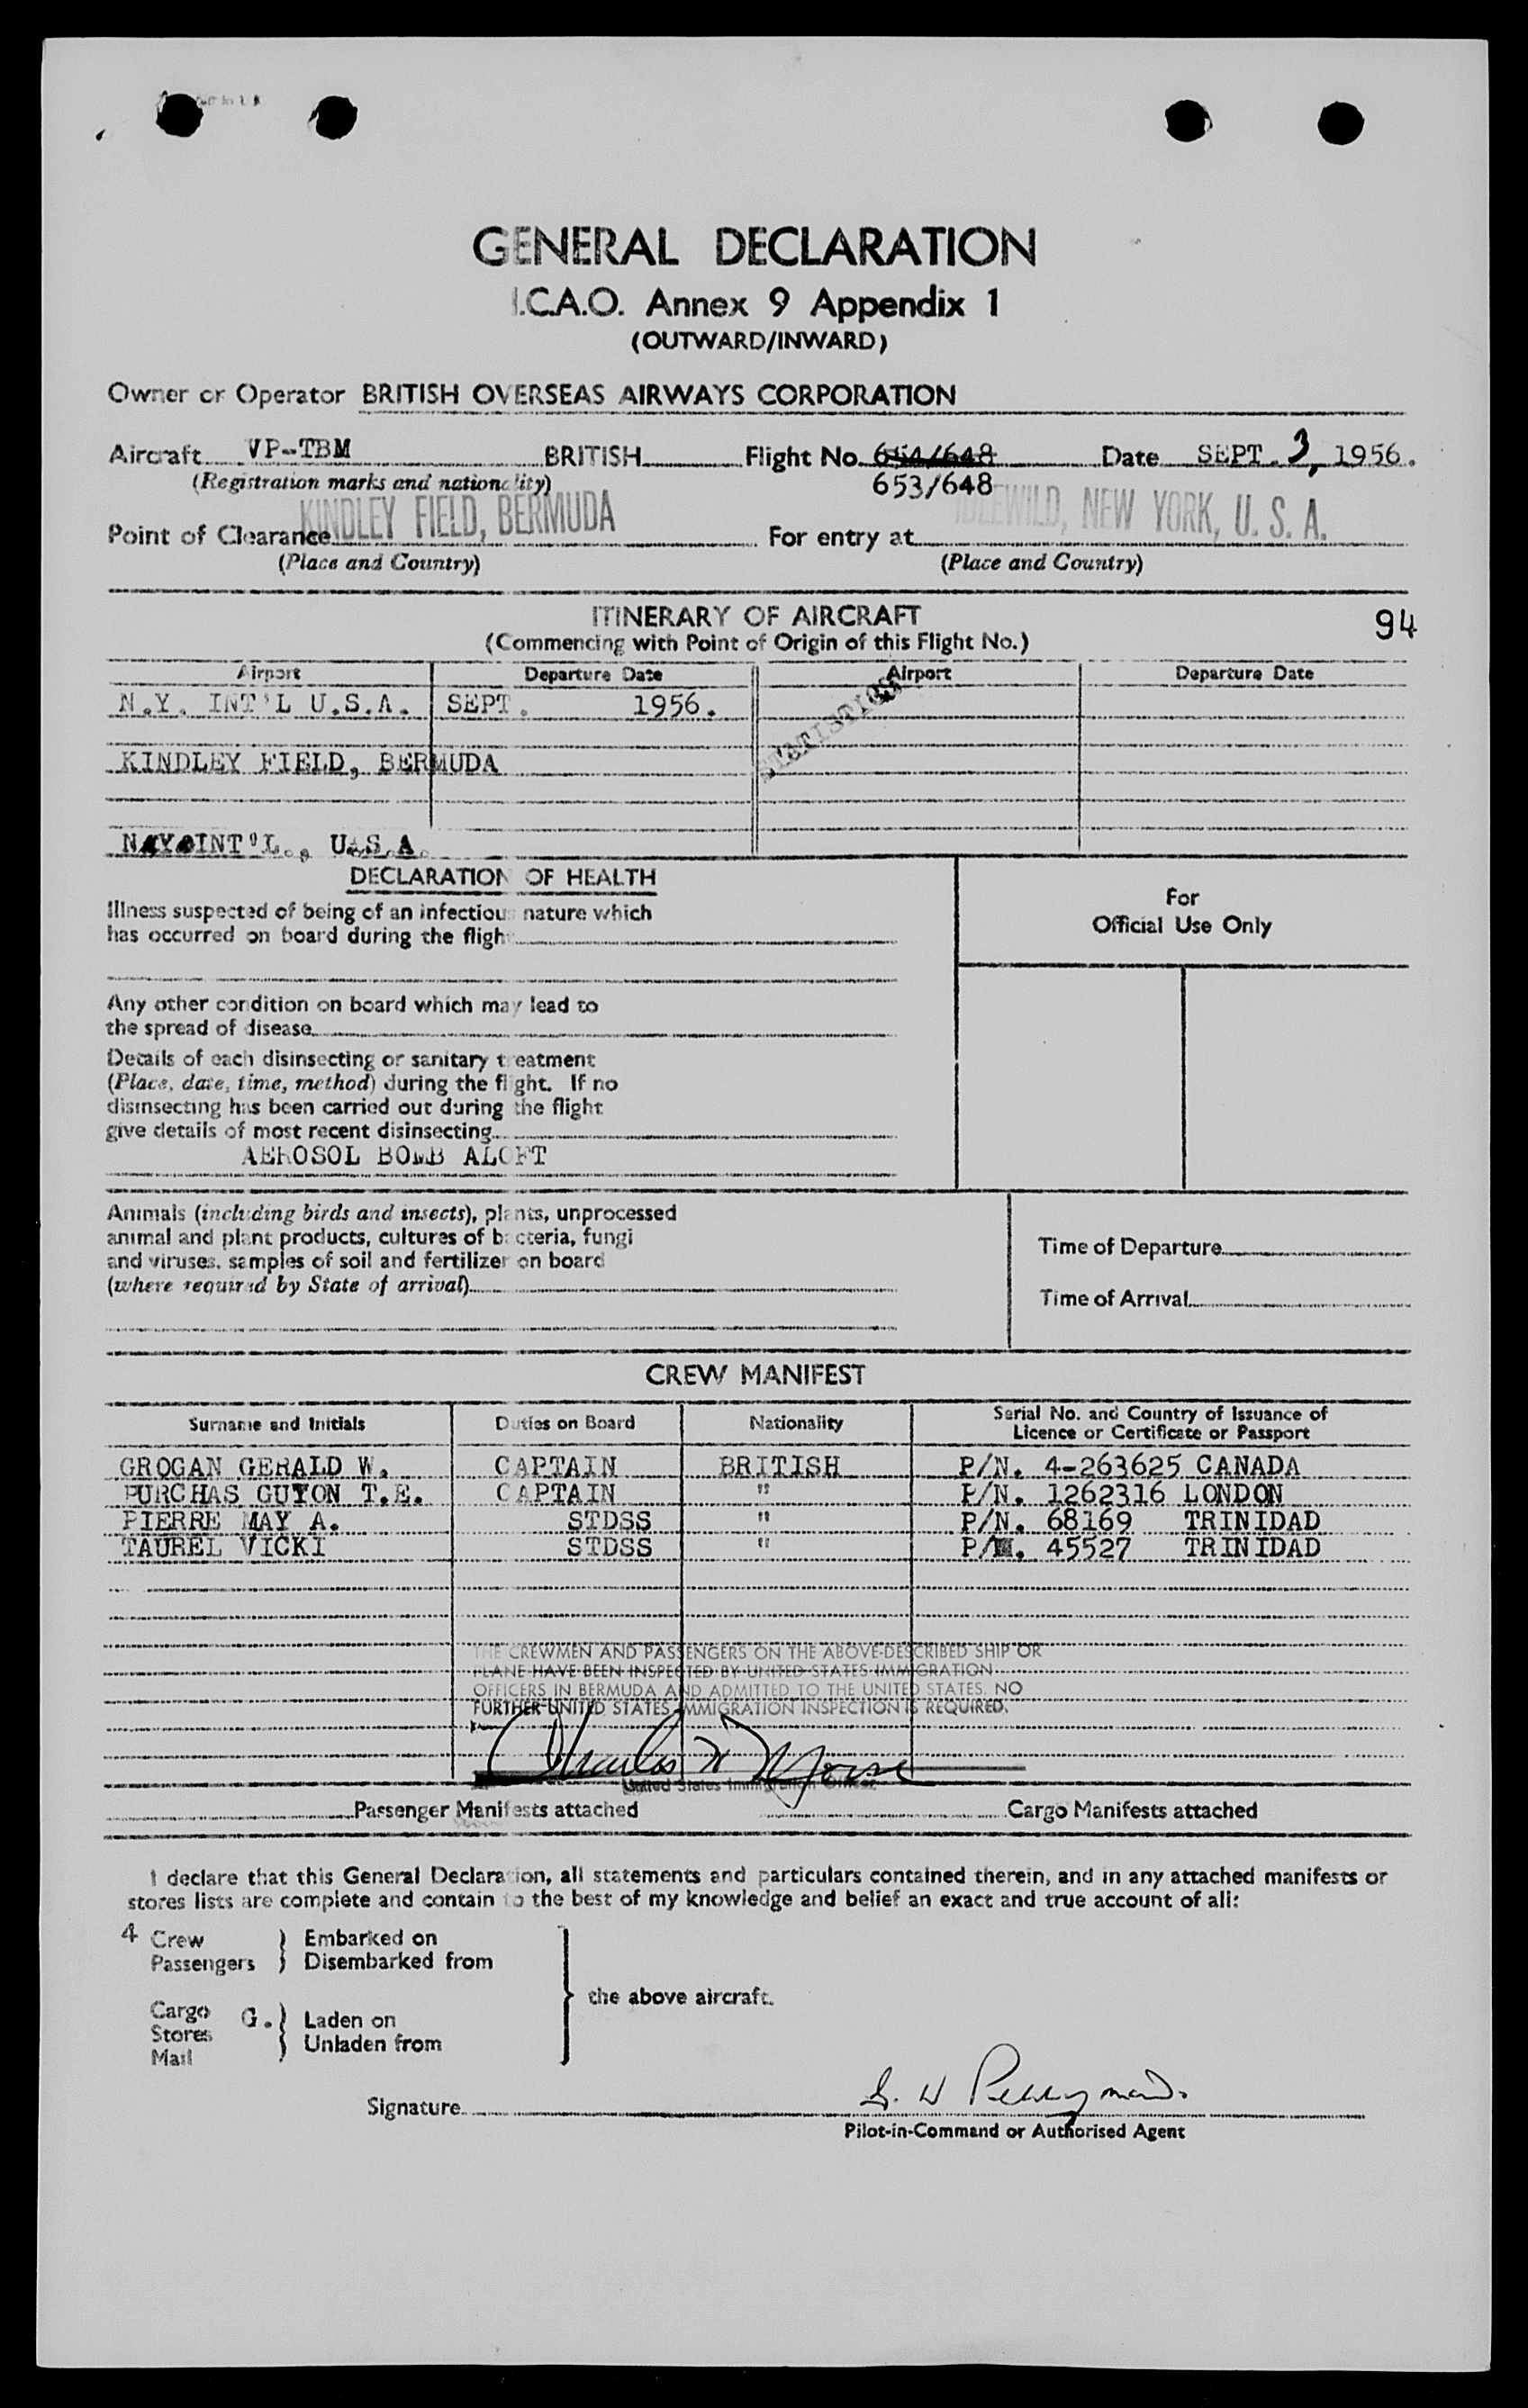 GENERAL DECLARATION
I.C.A.O. Annex 9 Appendix 1
(OUTWARD/INWARD)
Owner or Operator BRITISH OVERSEAS AIRWAYS CORPORATION
Aircraft VP-TBM BRITISH Flight No. 654/648 Date SEPT. 3, 1956.
(Registration marks and nationality) 653/648
Point of Clearance KINDLEY FIELD, BERMUDA For entry at IDLEWILD, NEW YORK, U. S. A.
(Place and Country) (Place and Country)
ITINERARY OF AIRCRAFT 94
(Commencing with Point of Origin of this Flight No.)
Airport Departure Date Airport Departure Date
N.Y. INT'L U.S.A. SEPT. 1956.
STATISTICS
KINDLEY FIELD, BERMUDA
N.Y. INT'L., U.S.A.
DECLARATION OF HEALTH
For
Official Use Only
Illness suspected of being of an infectious nature which
has occurred on board during the flight
Any other condition on board which may lead to
the spread of disease
Details of each disinsecting or sanitary treatment
(Place, date, time, method) during the flight. If no
disinsecting has been carried out during the flight
give details of most recent disinsecting
AEROSOL BOMB ALOFT
Animals (including birds and insects), plants, unprocessed
animal and plant products, cultures of bacteria, fungi
and viruses, samples of soil and fertilizer on board
(where required by State of arrival)
Time of Departure
Time of Arrival
CREW MANIFEST
Surname and Initials Duties on Board Nationality Serial No. and Country of Issuance of
Licence or Certificate or Passport
GROGAN GERALD W. CAPTAIN BRITISH P/N. 4-263625 CANADA
PURCHAS GUYON T.E. CAPTAIN " P/N. 1262316 LONDON
PIERRE MAY A. STDSS " P/N. 68169 TRINIDAD
TAUREL VICKI STDSS " P/N. 45527 TRINIDAD
THE CREWMEN AND PASSENGERS ON THE ABOVE-DESCRIBED SHIP OR
PLANE HAVE BEEN INSPECTED BY UNITED STATES IMMIGRATION
OFFICERS IN BERMUDA AND ADMITTED TO THE UNITED STATES. NO
FURTHER UNITED STATES IMMIGRATION INSPECTION IS REQUIRED.
Charles W Morse
United States Immigration Officer
Passenger Manifests attached Cargo Manifests attached
I declare that this General Declaration, all statements and particulars contained therein, and in any attached manifests or
stores lists are complete and contain to the best of my knowledge and belief an exact and true account of all:
4 Crew } Embarked on
Passengers } Disembarked from
the above aircraft.
Cargo G. } Laden on
Stores } Unladen from
Mail
Signature S. W Perryman
Pilot-in-Command or Authorised Agent